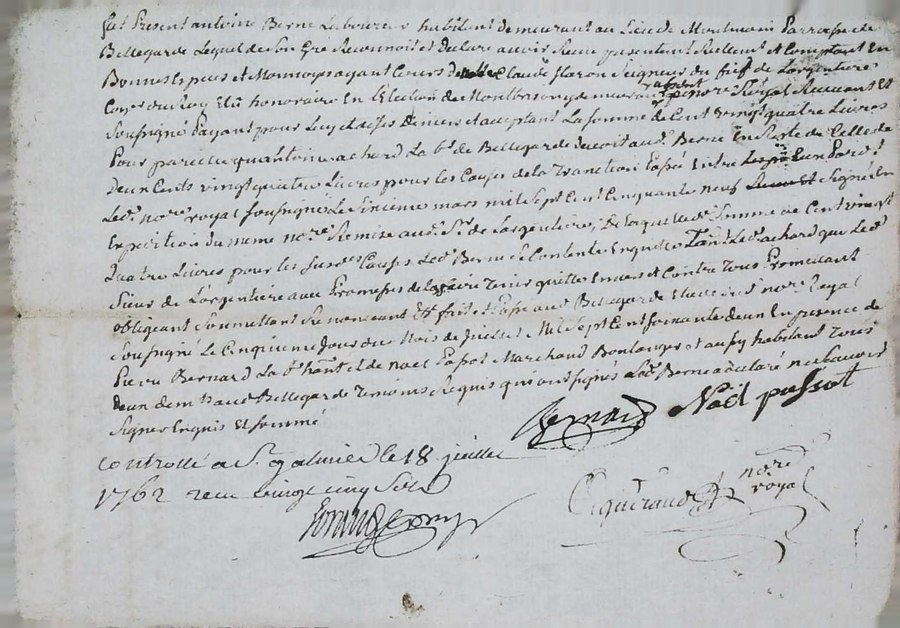 fut Present antoine Berne Laboureur habitant demeurant au Lieu de Parroisse de
Bellegarde Lequel de son Gré Reconnoit et declare avoir Receu presentement Reellement et Comptant En
Bonnes Especes et Monnoyes ayant Cours de Claude Seigneur du fief de Largentiere
Coner du Roy Elu honoraire En L'Election de Montbrison y demeurant absent nore Royal Recevant Et
soussigné payant pour Luy et de ses Deniers et acceptant La somme de Cent vingt quatre Livres
Pour pareille qu'antoine achard La dt de Bellegarde devoit aud. Berne En Reste de Celle de
Deux Cents vingt quatre Livres pour les Causes de la Passée Entre Les pies Pard.t
Led. nore royal soussigné Le mars mil sept Cent Cinquante neuf Signé En
Expedition du meme nore Remise aud. Sr. de Largentiere, De laquelle d. somme de Cent vingt
Quatre Livres pour les susd.es Causes Led. Berne se Contente En quitte Tant Led. achard que Led.
Sieur de Largentiere avec Promesses de Tenir quittes Envers et Contre Tous Promettant
obligeant soumettant Renonceant &a fait et Passé aud. Bellegarde Etude dud. nore Royal
Soussigné Le Cinquieme Jour du Mois de Juillet Mil Sept Cent soixante deux En presence de
Pierre Bernard La dt hant et de Noel Passot Marchand Boulanger et aussy habitant Tous
deux dem.t aud. Bellegarde Temoins Requis qui ont signés Led. Berne a declaré ne Scavoir
signer Enquis Et sommé
Bernard Noël passot
Controllé a St. galmier le 18 juillet
1762 receu vingt cinq Sols
Ciguéraud nore
royal